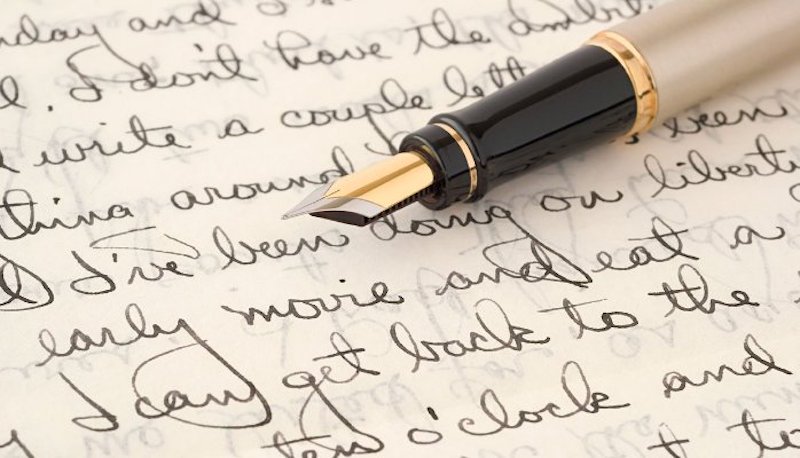 and I
I don't have the
write a couple
around been
I've been doing on liberty
early movie and eat a
I can get back to the
ten o'clock and
to